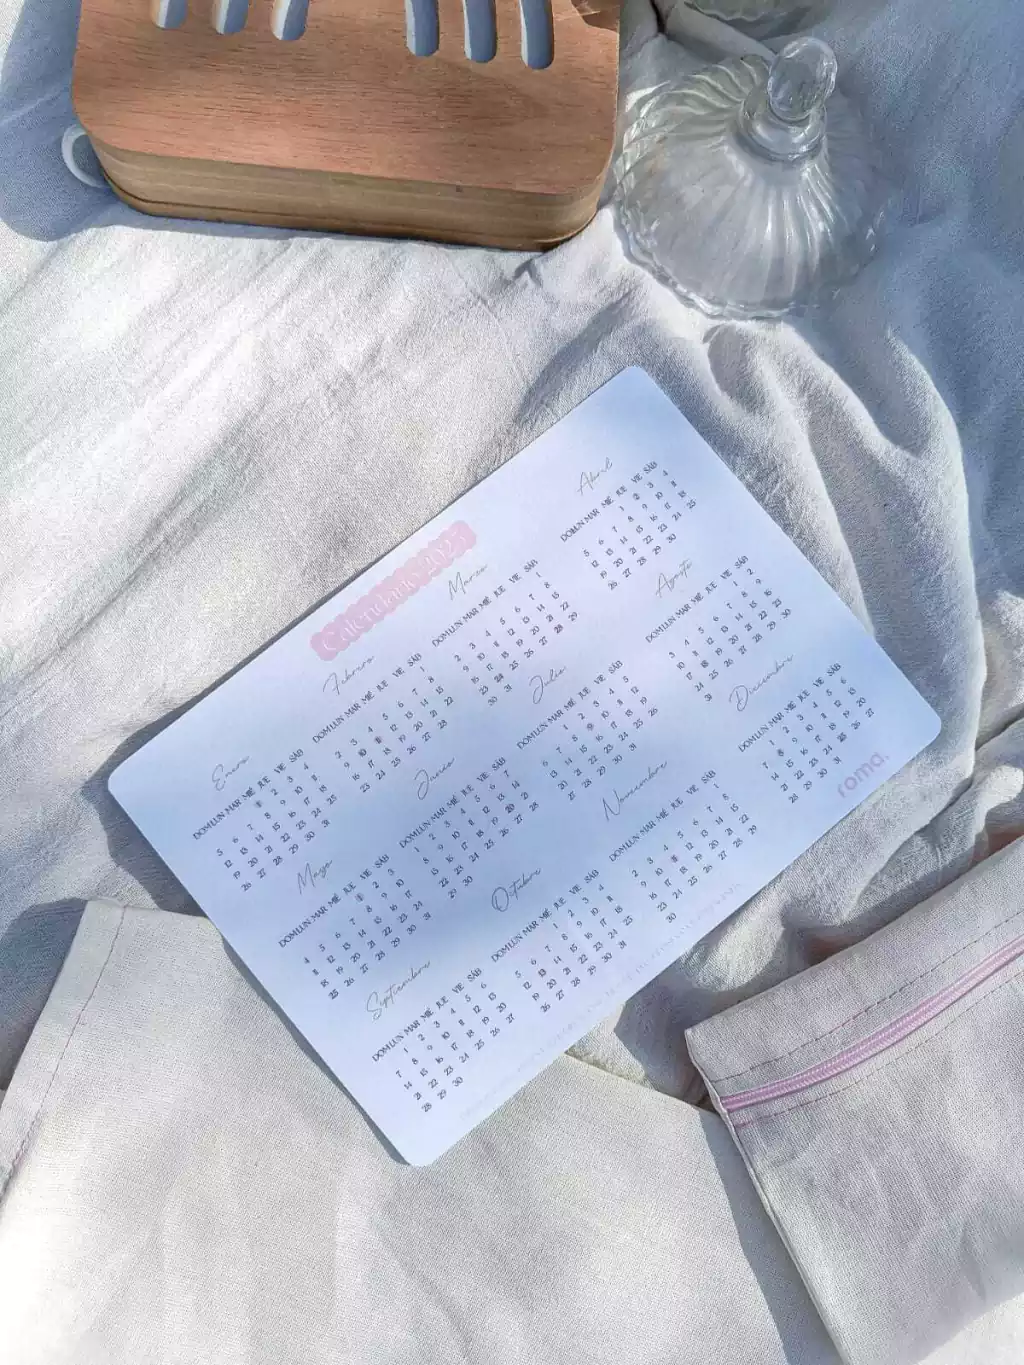 Calendario 2025
Enero
DOM LUN MAR MIÉ JUE VIE SÁB
1 2 3 4
5 6 7 8 9 10 11
12 13 14 15 16 17 18
19 20 21 22 23 24 25
26 27 28 29 30 31
Febrero
DOM LUN MAR MIÉ JUE VIE SÁB
1
2 3 4 5 6 7 8
9 10 11 12 13 14 15
16 17 18 19 20 21 22
23 24 25 26 27 28
Marzo
DOM LUN MAR MIÉ JUE VIE SÁB
1
2 3 4 5 6 7 8
9 10 11 12 13 14 15
16 17 18 19 20 21 22
23 24 25 26 27 28 29
30 31
Abril
DOM LUN MAR MIÉ JUE VIE SÁB
1 2 3 4
5 6 7 8 9 10 11
12 13 14 15 16 17 18
19 20 21 22 23 24 25
26 27 28 29 30
Mayo
DOM LUN MAR MIÉ JUE VIE SÁB
1 2 3
4 5 6 7 8 9 10
11 12 13 14 15 16 17
18 19 20 21 22 23 24
25 26 27 28 29 30 31
Junio
DOM LUN MAR MIÉ JUE VIE SÁB
1 2 3 4 5 6 7
8 9 10 11 12 13 14
15 16 17 18 19 20 21
22 23 24 25 26 27 28
29 30
Julio
DOM LUN MAR MIÉ JUE VIE SÁB
1 2 3 4 5
6 7 8 9 10 11 12
13 14 15 16 17 18 19
20 21 22 23 24 25 26
27 28 29 30 31
Agosto
DOM LUN MAR MIÉ JUE VIE SÁB
1 2
3 4 5 6 7 8 9
10 11 12 13 14 15 16
17 18 19 20 21 22 23
24 25 26 27 28 29 30
31
Septiembre
DOM LUN MAR MIÉ JUE VIE SÁB
1 2 3 4 5 6
7 8 9 10 11 12 13
14 15 16 17 18 19 20
21 22 23 24 25 26 27
28 29 30
Octubre
DOM LUN MAR MIÉ JUE VIE SÁB
1 2 3 4
5 6 7 8 9 10 11
12 13 14 15 16 17 18
19 20 21 22 23 24 25
26 27 28 29 30 31
Noviembre
DOM LUN MAR MIÉ JUE VIE SÁB
1
2 3 4 5 6 7 8
9 10 11 12 13 14 15
16 17 18 19 20 21 22
23 24 25 26 27 28 29
30
Diciembre
DOM LUN MAR MIÉ JUE VIE SÁB
1 2 3 4 5 6
7 8 9 10 11 12 13
14 15 16 17 18 19 20
21 22 23 24 25 26 27
28 29 30 31
roma.